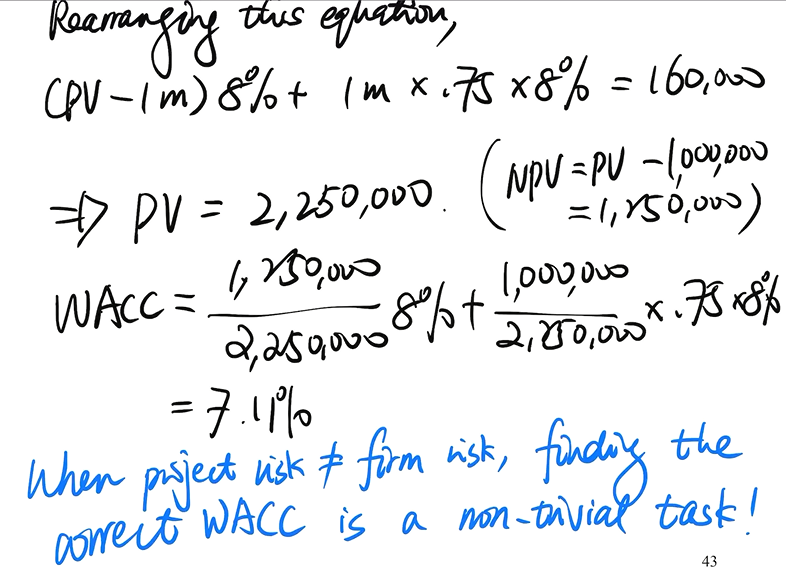 Rearranging this equation,
(PV - 1m) 8% + 1m × .75 × 8% = 160,000
⇒ PV = 2,250,000. (NPV = PV - 1,000,000
= 1,250,000)
WACC = 1,250,000/2,250,000 8% + 1,000,000/2,250,000 × .75 × 8%
= 7.11%
When project risk ≠ firm risk, finding the
correct WACC is a non-trivial task!
43